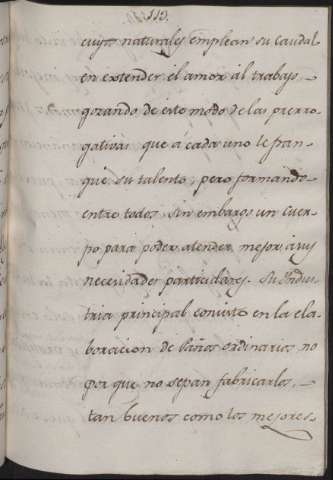 113.
cuyos naturales emplean su caudal
en extender el amor al trabajo
gozando de este modo de las prerro
gativas que a cada uno le fran
que su talento, pero formando
entre todos sin embargo un cuer
po para poder atender mejor a sus
necesidades particulares. Su Indus
tria principal consiste en la ela
boracion de Paños ordinarios no
por que no sepan fabricarlos
tan buenos como los mejores